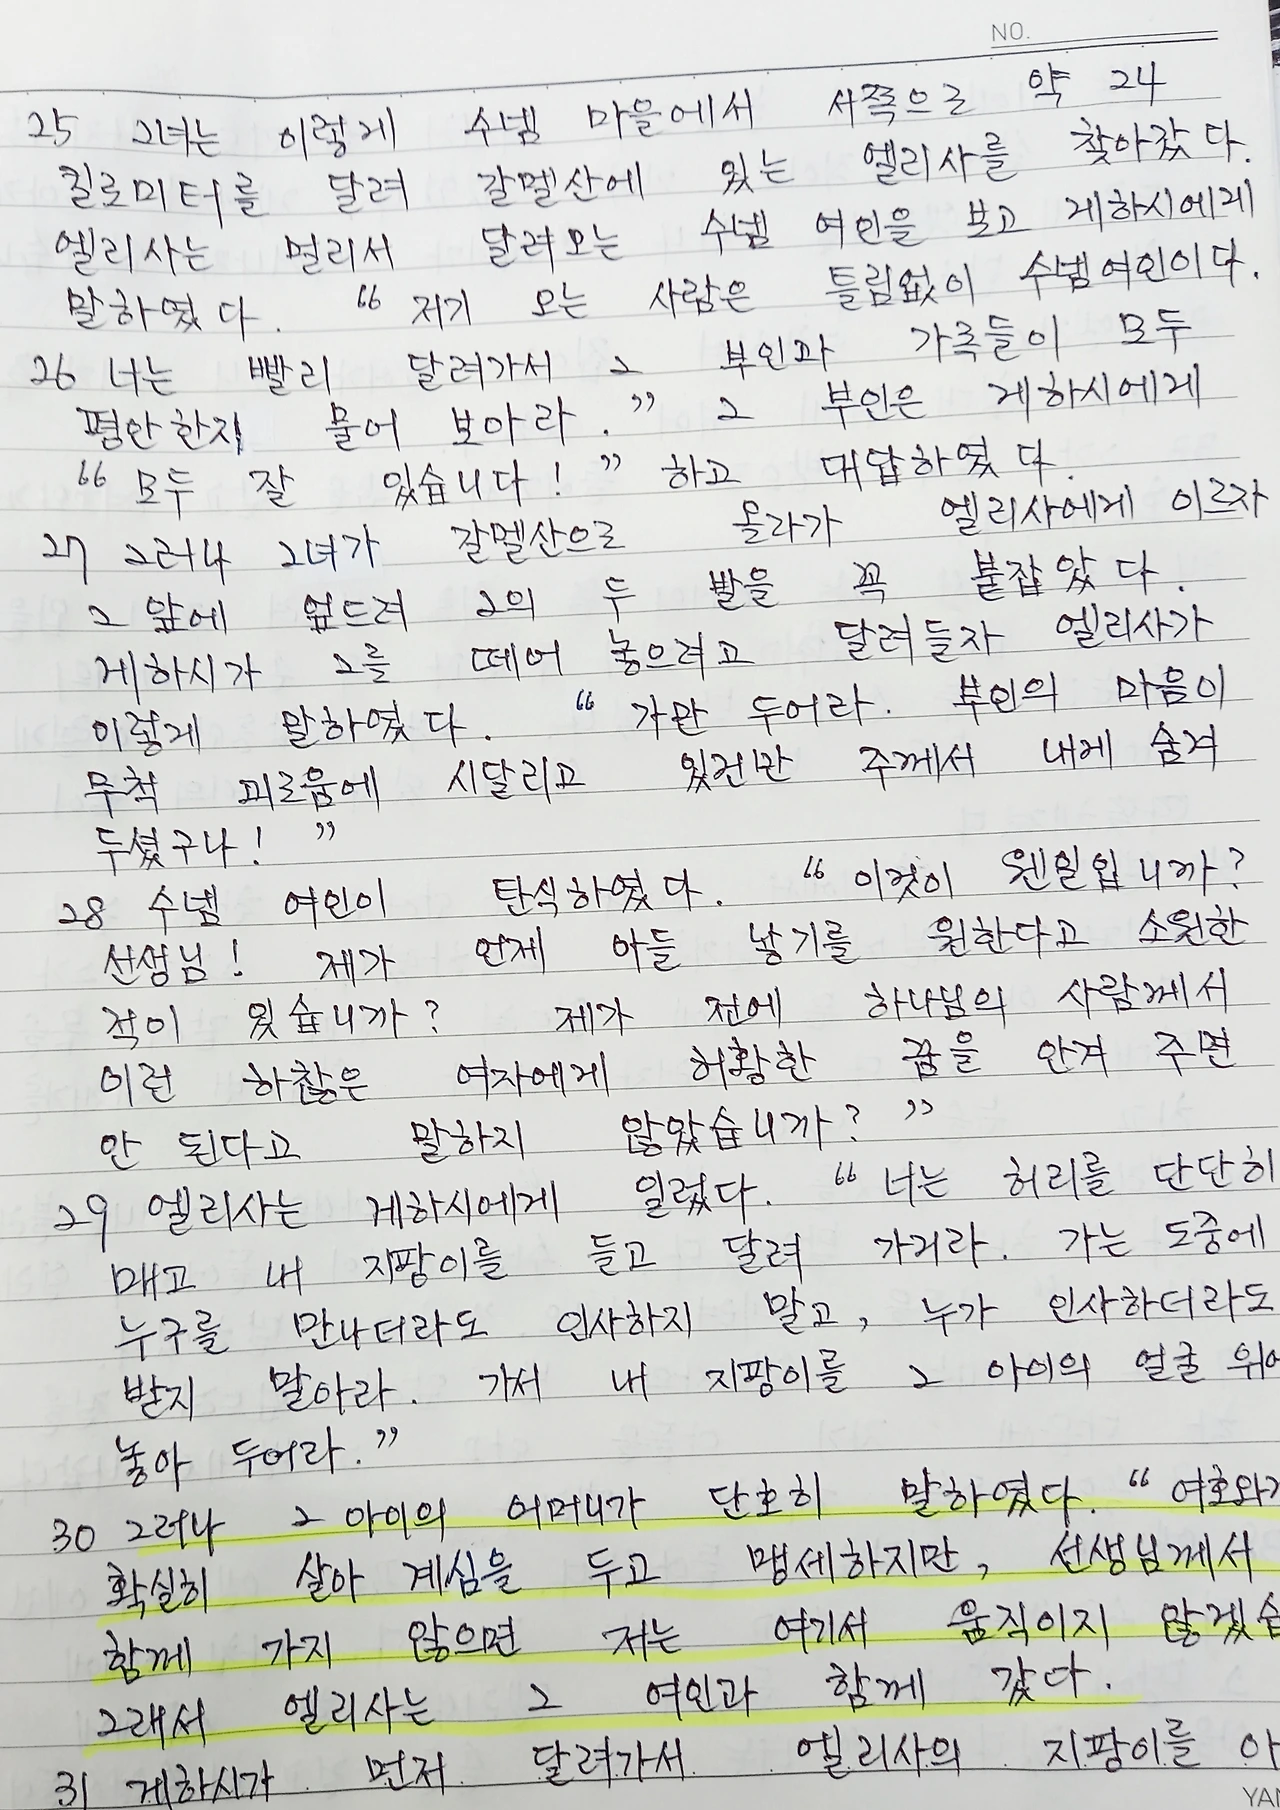 NO.
25 그녀는 이렇게 수넴 마을에서 서쪽으로 약 24
킬로미터를 달려 갈멜산에 있는 엘리사를 찾아갔다.
엘리사는 멀리서 달려오는 수넴 여인을 보고 게하시에게
말하였다. “저기 오는 사람은 틀림없이 수넴여인이다.
26 너는 빨리 달려가서 그 부인과 가족들이 모두
평안한지 물어 보아라.” 그 부인은 게하시에게
“모두 잘 있습니다!” 하고 대답하였다.
27 그러나 그녀가 갈멜산으로 올라가 엘리사에게 이르자
그 앞에 엎드려 그의 두 발을 꼭 붙잡았다.
게하시가 그를 떼어 놓으려고 달려들자 엘리사가
이렇게 말하였다. “가만 두어라. 부인의 마음이
무척 괴로움에 시달리고 있건만 주께서 내게 숨겨
두셨구나!”
28 수넴 여인이 탄식하였다. “이것이 웬일입니까?
선생님! 제가 언제 아들 낳기를 원한다고 소원한
적이 있습니까? 제가 전에 하나님의 사람께서
이런 하찮은 여자에게 허황한 꿈을 안겨 주면
안 된다고 말하지 않았습니까?”
29 엘리사는 게하시에게 일렀다. “너는 허리를 단단히
매고 내 지팡이를 들고 달려 가거라. 가는 도중에
누구를 만나더라도 인사하지 말고, 누가 인사하더라도
받지 말아라. 가서 내 지팡이를 그 아이의 얼굴 위에
놓아 두어라.”
30 그러나 그 아이의 어머니가 단호히 말하였다. “여호와가
확실히 살아 계심을 두고 맹세하지만, 선생님께서
함께 가지 않으면 저는 여기서 움직이지 않겠습
그래서 엘리사는 그 여인과 함께 갔다.
31 게하시가 먼저 달려가서 엘리사의 지팡이를 아
YAN